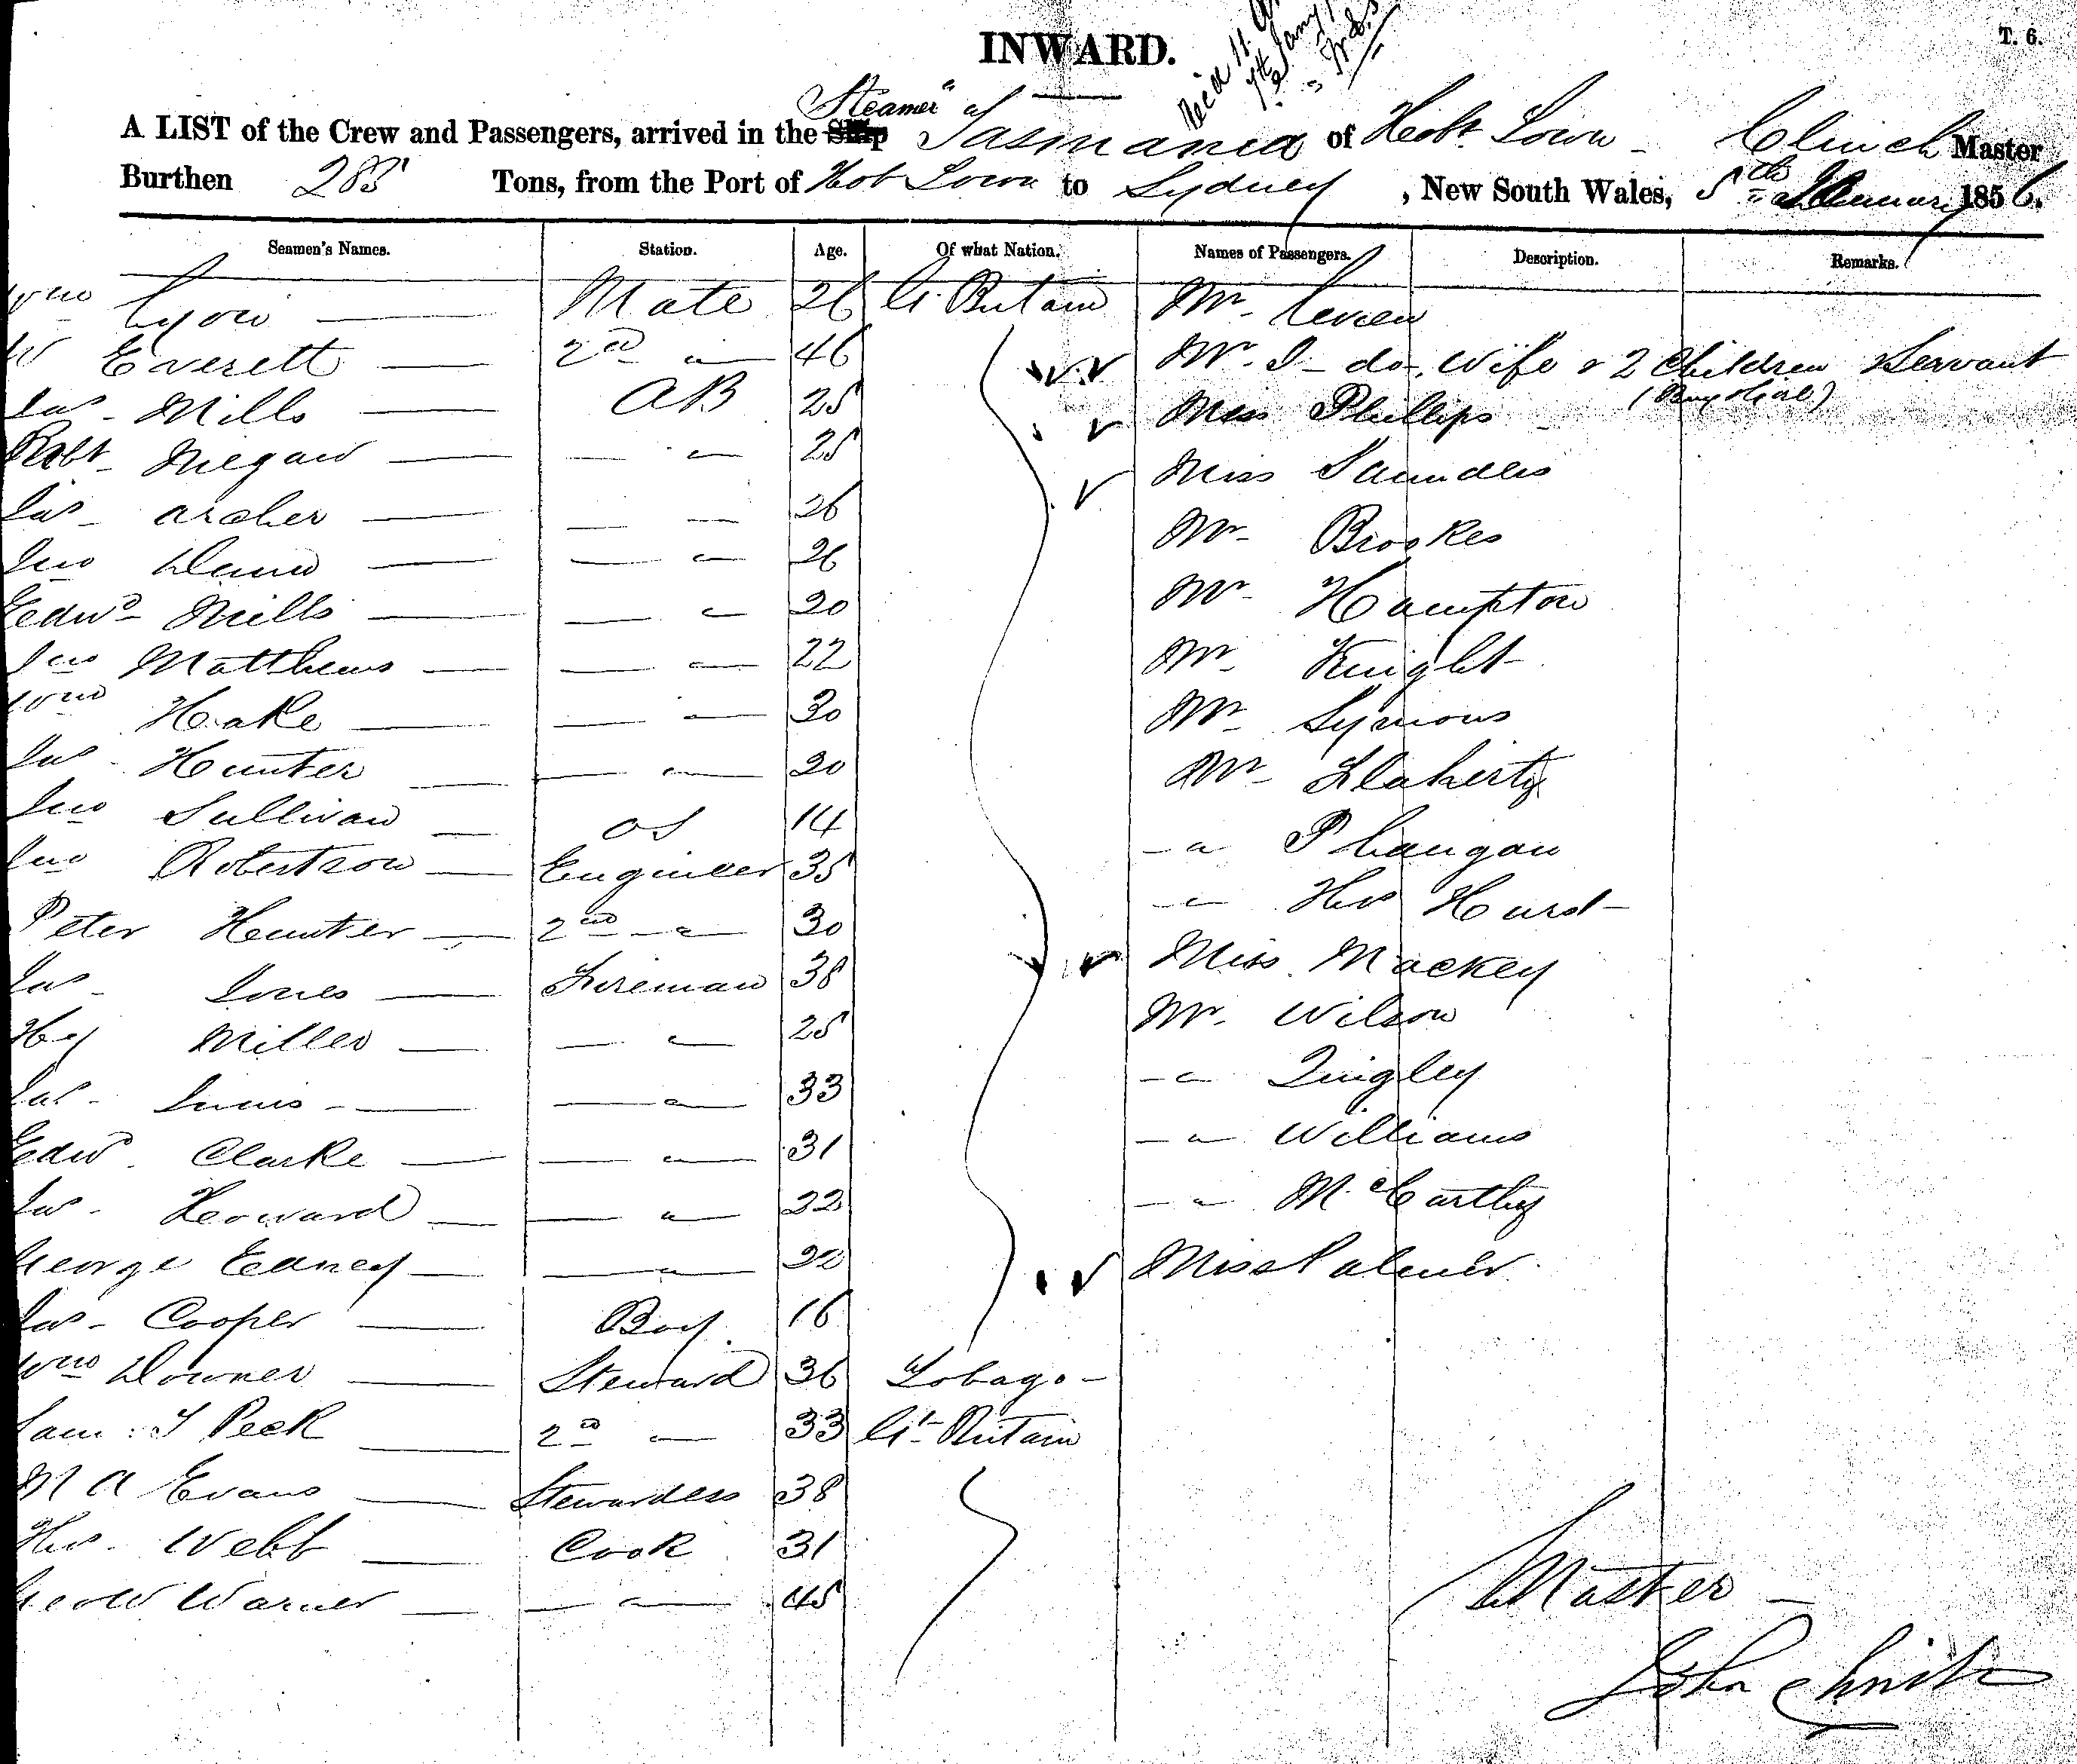 INWARD.
T. 6.
Steamer
A LIST of the Crew and Passengers, arrived in the Ship Tasmania of Hobt Town - Clinch Master
Burthen 285 Tons, from the Port of Hob Town to Sydney, New South Wales, 5th January 1856.
Seamen's Names. Station. Age. Of what Nation. Names of Passengers. Description. Remarks.
Wm Lyon Mate 26 Gt Britain Mr
W Everett 2nd " 46 Mr I do. Wife & 2 Children Servant
Jas Mills AB 25 Miss Phillips
Robt Megaw " 25 Miss Saunders
Jas Archer 26 Mr Brookes
Jno " 26 Mr Hampton
Edwd Mills " 20 Mr Knight
Jno Matthews " 22 Mr Symons
Wm Hake " 30 Mr Flaherty
Jas Hunter " 20 " P Langan
Jno Sullivan OS 14 " Hurst
Jno Robertson Engineer 35 Miss Mackey
Peter Hunter 2nd " 30 Mr Wilson
Jas Jones Fireman 38 " Quigley
Hy Miller " 25 " Williams
Jas " 33 " McCarthy
Edwd Clarke " 31 Miss Palmer
Jas Howard " 22
George Edney "
Jas Cooper Boy 16
Wm Downer Steward 36 Tobago
Sam: T Peek 2nd " 33 Gt Britain
M A Evans Stewardess 38
Webb Cook 31
Warner " 45
Master
John Clinch